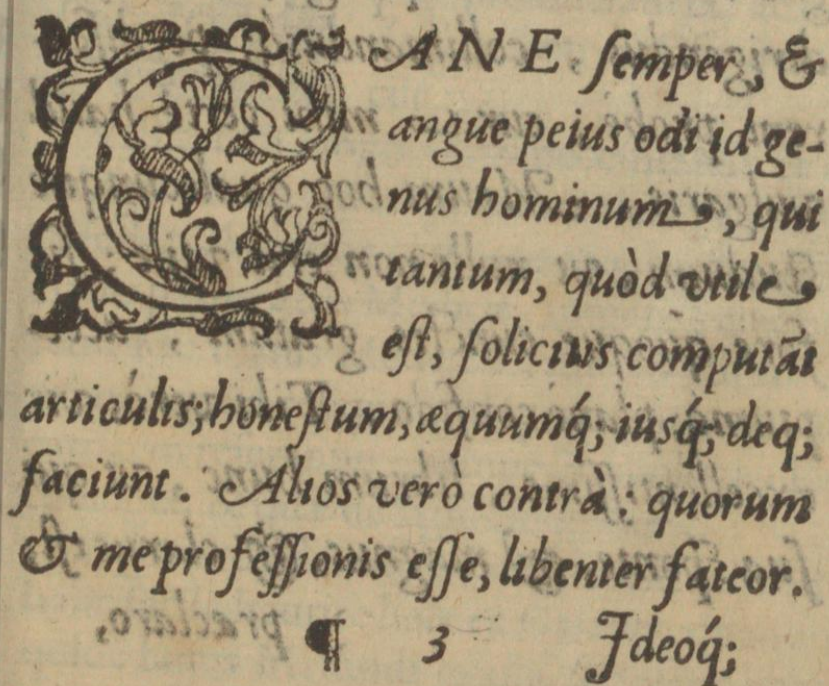 CANE semper, &
angue peius odi id ge-
nus hominum, qui
tantum, quòd vtile
est, solicitis computāt
articulis; honestum, æquumq́; iusq́; deq;
faciunt. Alios verò contrà: quorum
& me professionis esse, libenter fateor.
¶ 3 Ideoq́;